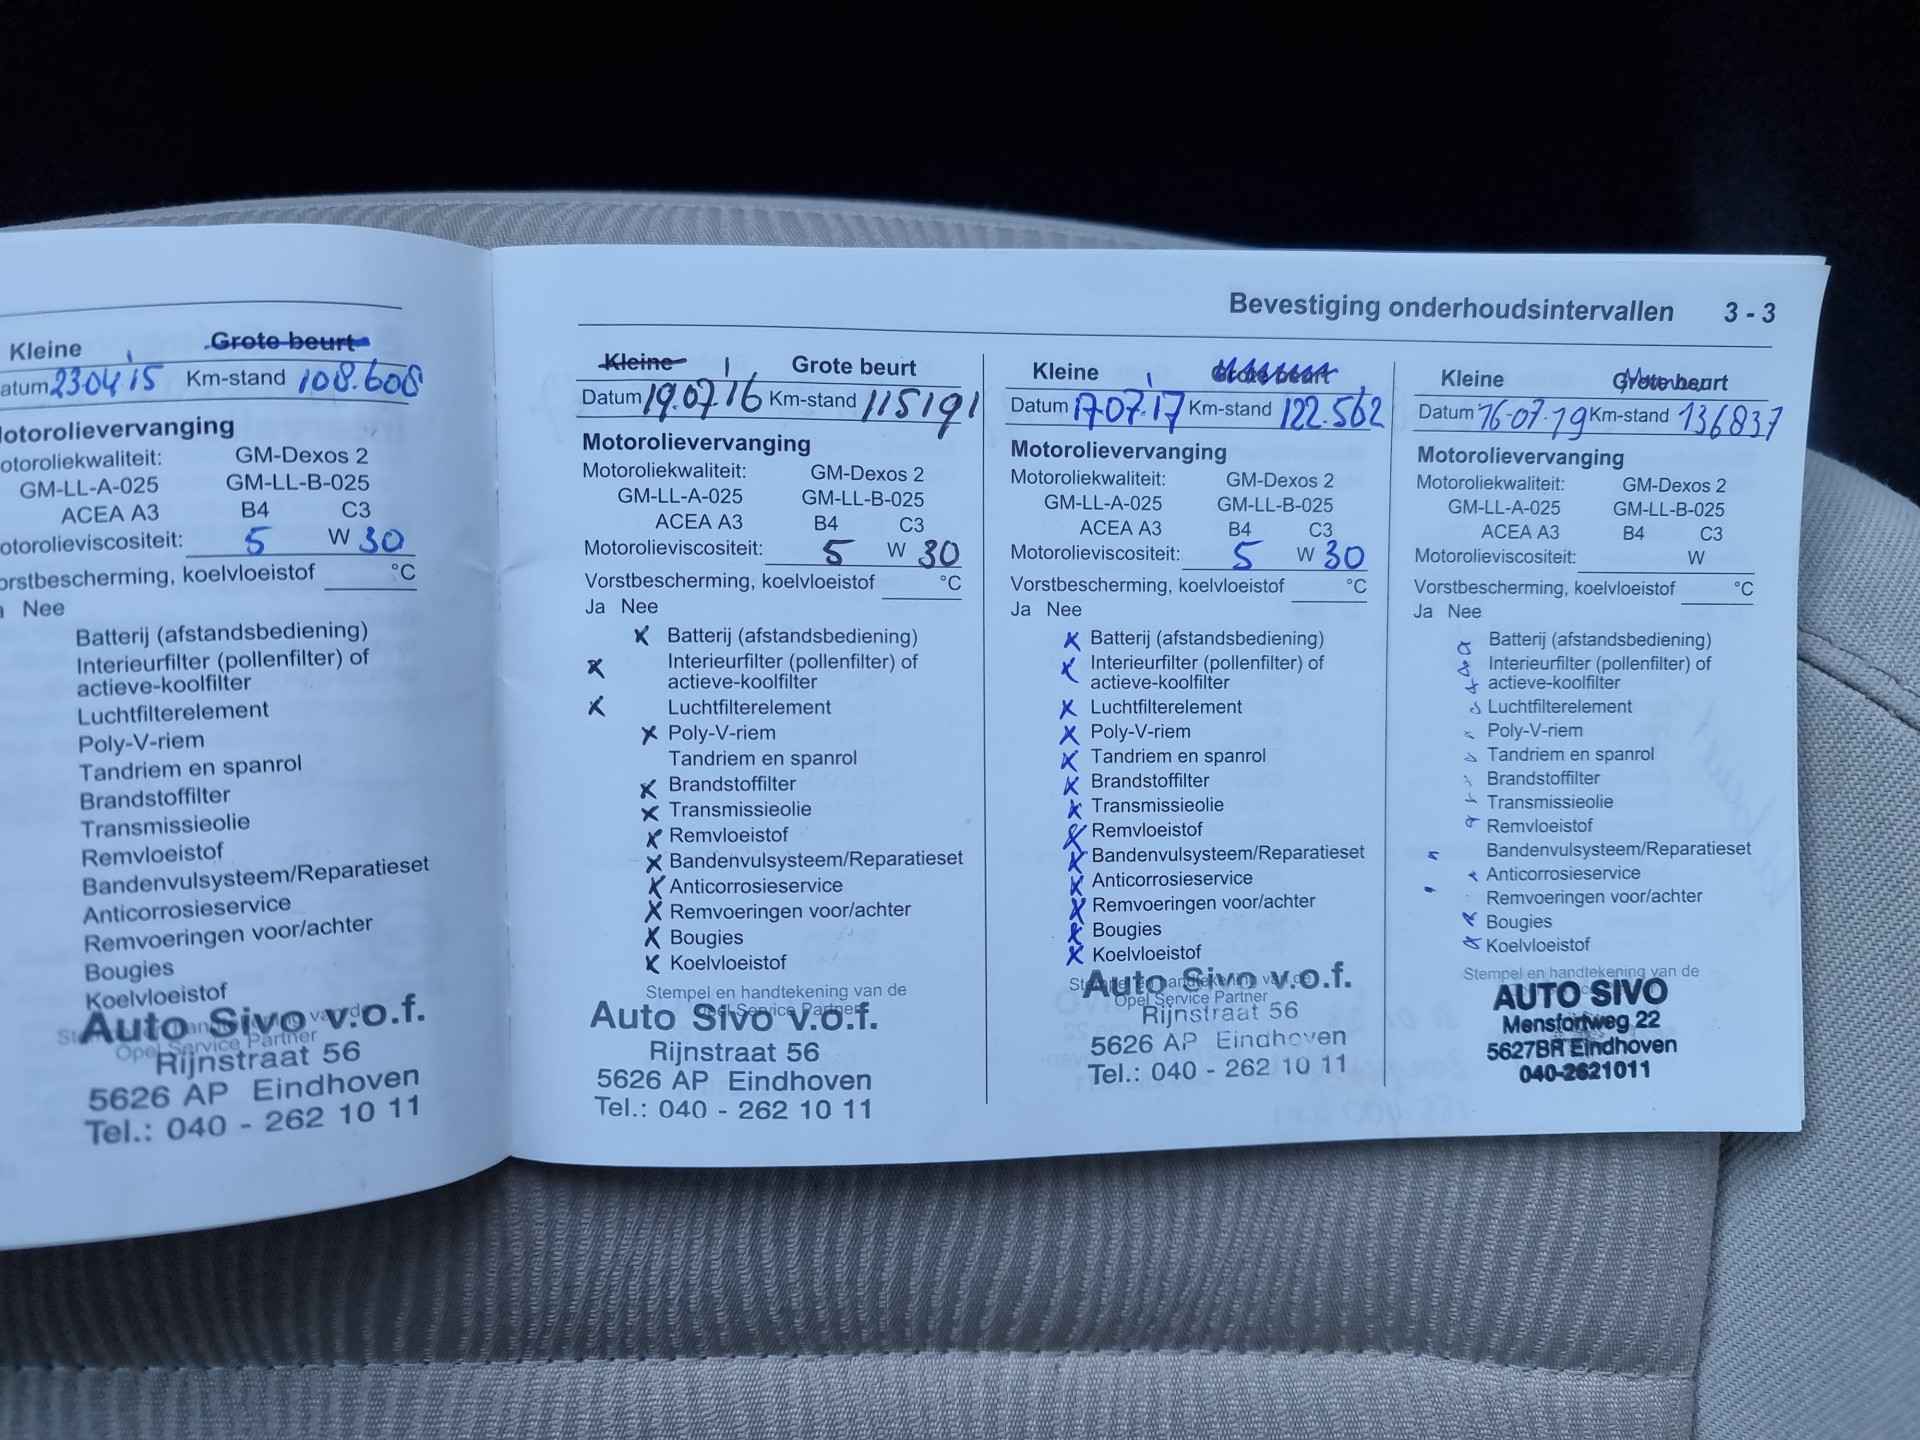 Bevestiging onderhoudsintervallen 3 - 3
Kleine Grote beurt
atum 23 04 15 Km-stand 108.608
otorolievervanging
otoroliekwaliteit: GM-Dexos 2
GM-LL-A-025 GM-LL-B-025
ACEA A3 B4 C3
otorolieviscositeit: 5 W 30
orstbescherming, koelvloeistof °C
a Nee
Batterij (afstandsbediening)
Interieurfilter (pollenfilter) of
actieve-koolfilter
Luchtfilterelement
Poly-V-riem
Tandriem en spanrol
Brandstoffilter
Transmissieolie
Remvloeistof
Bandenvulsysteem/Reparatieset
Anticorrosieservice
Remvoeringen voor/achter
Bougies
Koelvloeistof
Auto Sivo v.o.f.
Opel Service Partner
Rijnstraat 56
5626 AP Eindhoven
Tel.: 040 - 262 10 11
Kleine Grote beurt
Datum 19.07.16 Km-stand 115191
Motorolievervanging
Motoroliekwaliteit: GM-Dexos 2
GM-LL-A-025 GM-LL-B-025
ACEA A3 B4 C3
Motorolieviscositeit: 5 W 30
Vorstbescherming, koelvloeistof °C
Ja Nee
x Batterij (afstandsbediening)
x Interieurfilter (pollenfilter) of
actieve-koolfilter
x Luchtfilterelement
x Poly-V-riem
Tandriem en spanrol
x Brandstoffilter
x Transmissieolie
x Remvloeistof
x Bandenvulsysteem/Reparatieset
x Anticorrosieservice
x Remvoeringen voor/achter
x Bougies
x Koelvloeistof
Stempel en handtekening van de
Opel Service Partner
Auto Sivo v.o.f.
Rijnstraat 56
5626 AP Eindhoven
Tel.: 040 - 262 10 11
Kleine Grote beurt
Datum 17.07.17 Km-stand 122.562
Motorolievervanging
Motoroliekwaliteit: GM-Dexos 2
GM-LL-A-025 GM-LL-B-025
ACEA A3 B4 C3
Motorolieviscositeit: 5 W 30
Vorstbescherming, koelvloeistof °C
Ja Nee
x Batterij (afstandsbediening)
x Interieurfilter (pollenfilter) of
actieve-koolfilter
x Luchtfilterelement
x Poly-V-riem
x Tandriem en spanrol
x Brandstoffilter
x Transmissieolie
x Remvloeistof
x Bandenvulsysteem/Reparatieset
x Anticorrosieservice
x Remvoeringen voor/achter
x Bougies
x Koelvloeistof
Stempel en handtekening van de
Auto Sivo v.o.f.
Opel Service Partner
Rijnstraat 56
5626 AP Eindhoven
Tel.: 040 - 262 10 11
Kleine Grote beurt
Datum 16-07-19 Km-stand 136837
Motorolievervanging
Motoroliekwaliteit: GM-Dexos 2
GM-LL-A-025 GM-LL-B-025
ACEA A3 B4 C3
Motorolieviscositeit: W
Vorstbescherming, koelvloeistof °C
Ja Nee
Batterij (afstandsbediening)
Interieurfilter (pollenfilter) of
actieve-koolfilter
Luchtfilterelement
Poly-V-riem
Tandriem en spanrol
Brandstoffilter
Transmissieolie
Remvloeistof
Bandenvulsysteem/Reparatieset
Anticorrosieservice
Remvoeringen voor/achter
Bougies
Koelvloeistof
Stempel en handtekening van de
AUTO SIVO
Mensfortweg 22
5627BR Eindhoven
040-2621011